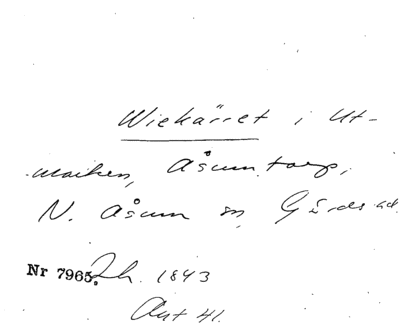 Wiekärret i Ut-
marken, Åsumtorp,
N. Åsum sn, Gärds hd.
Nr 7965. Lh. 1843
Akt 41.